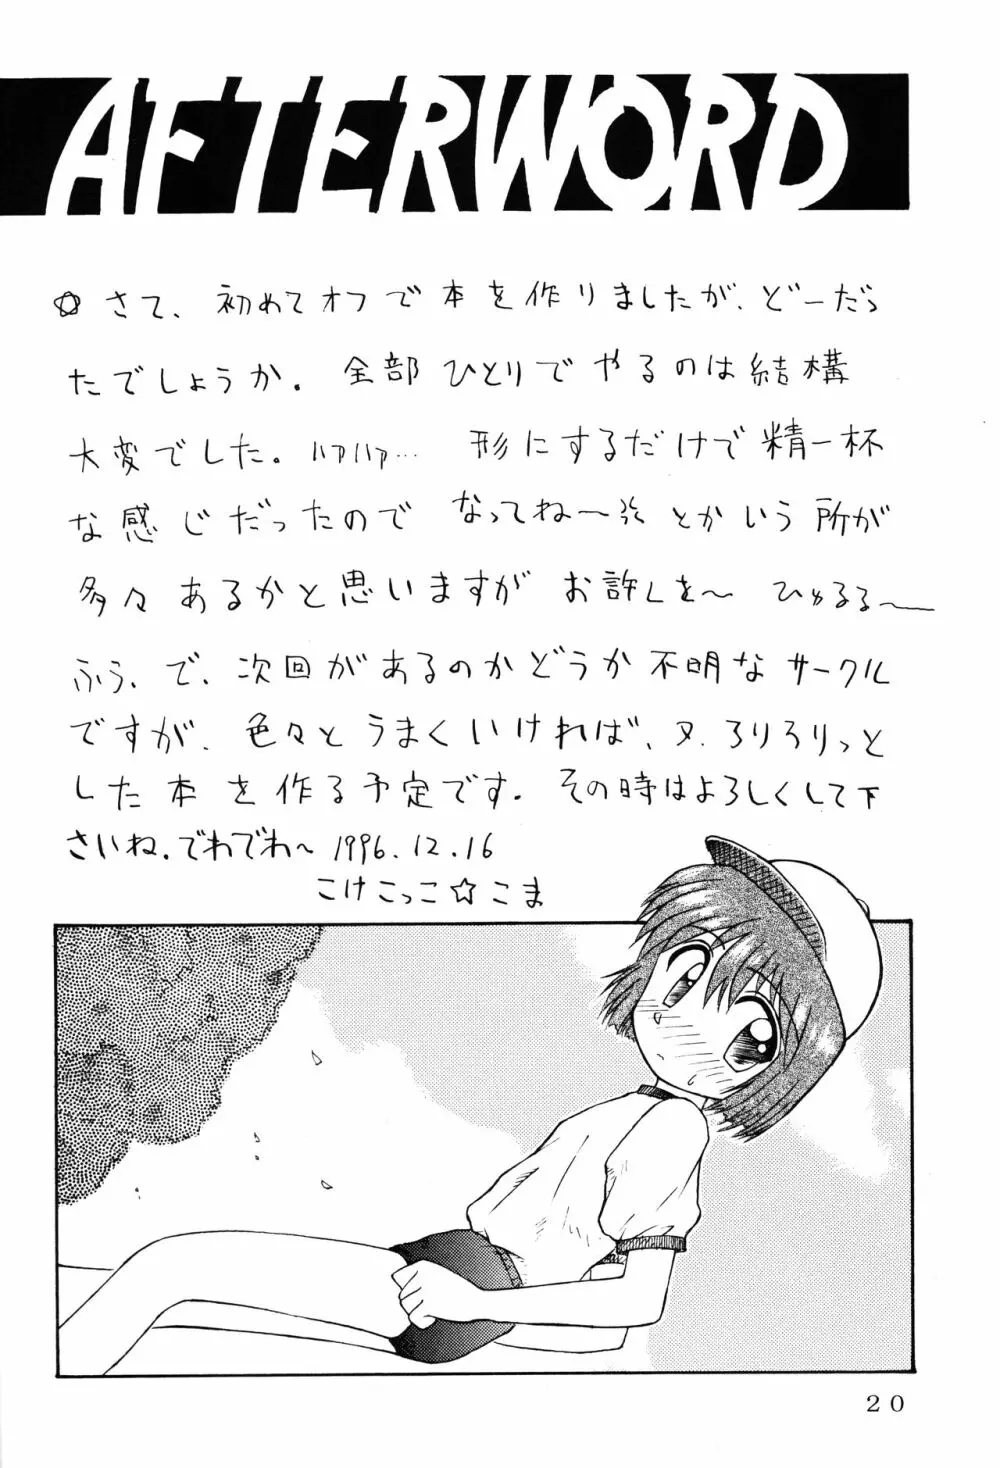 AFTERWORD
☆さて、初めてオフで本を作りましたが、どーだっ
たでしょうか。全部ひとりでやるのは結構
大変でした。ハアハア… 形にするだけで精一杯
な感じだったので なってね〜 とかいう所が
多々あるかと思いますが お許しを〜 ひゅるる〜
ふう、で、次回があるのかどうか不明なサークル
ですが、色々とうまくいければ、又、ろりろりっと
した本を作る予定です。その時はよろしくして下
さいね。でわでわ〜 1996.12.16
こけこっこ☆こま
20